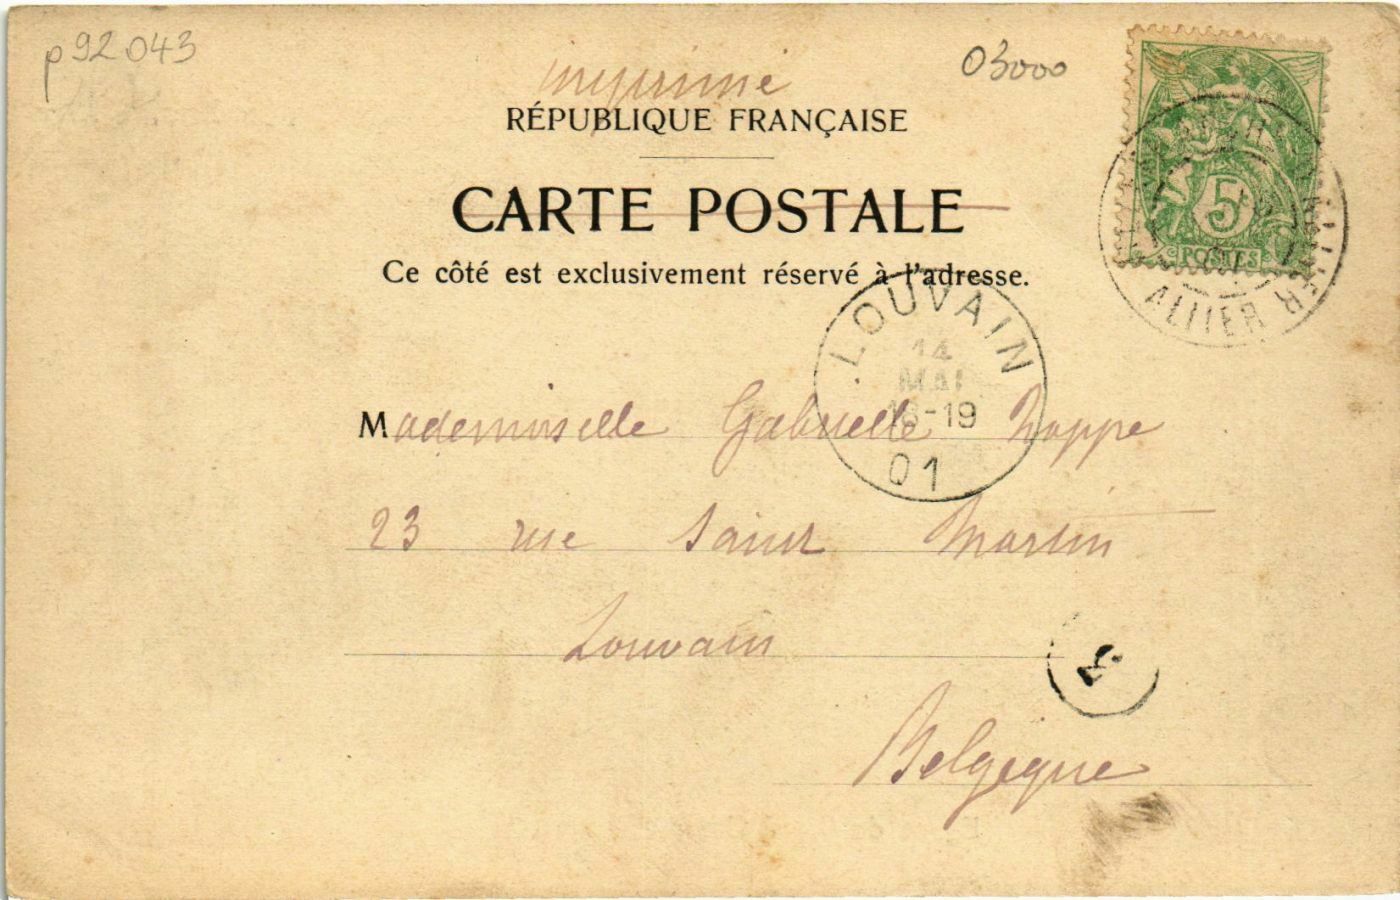 p92043
03000
imprimé
RÉPUBLIQUE FRANÇAISE
CARTE POSTALE
Ce côté est exclusivement réservé à l'adresse.
5
POSTES
ALLIER
LOUVAIN
14
MAI
18-19
01
Mademoiselle Gabrielle
23 rue Saint Martin
Louvain
Belgique